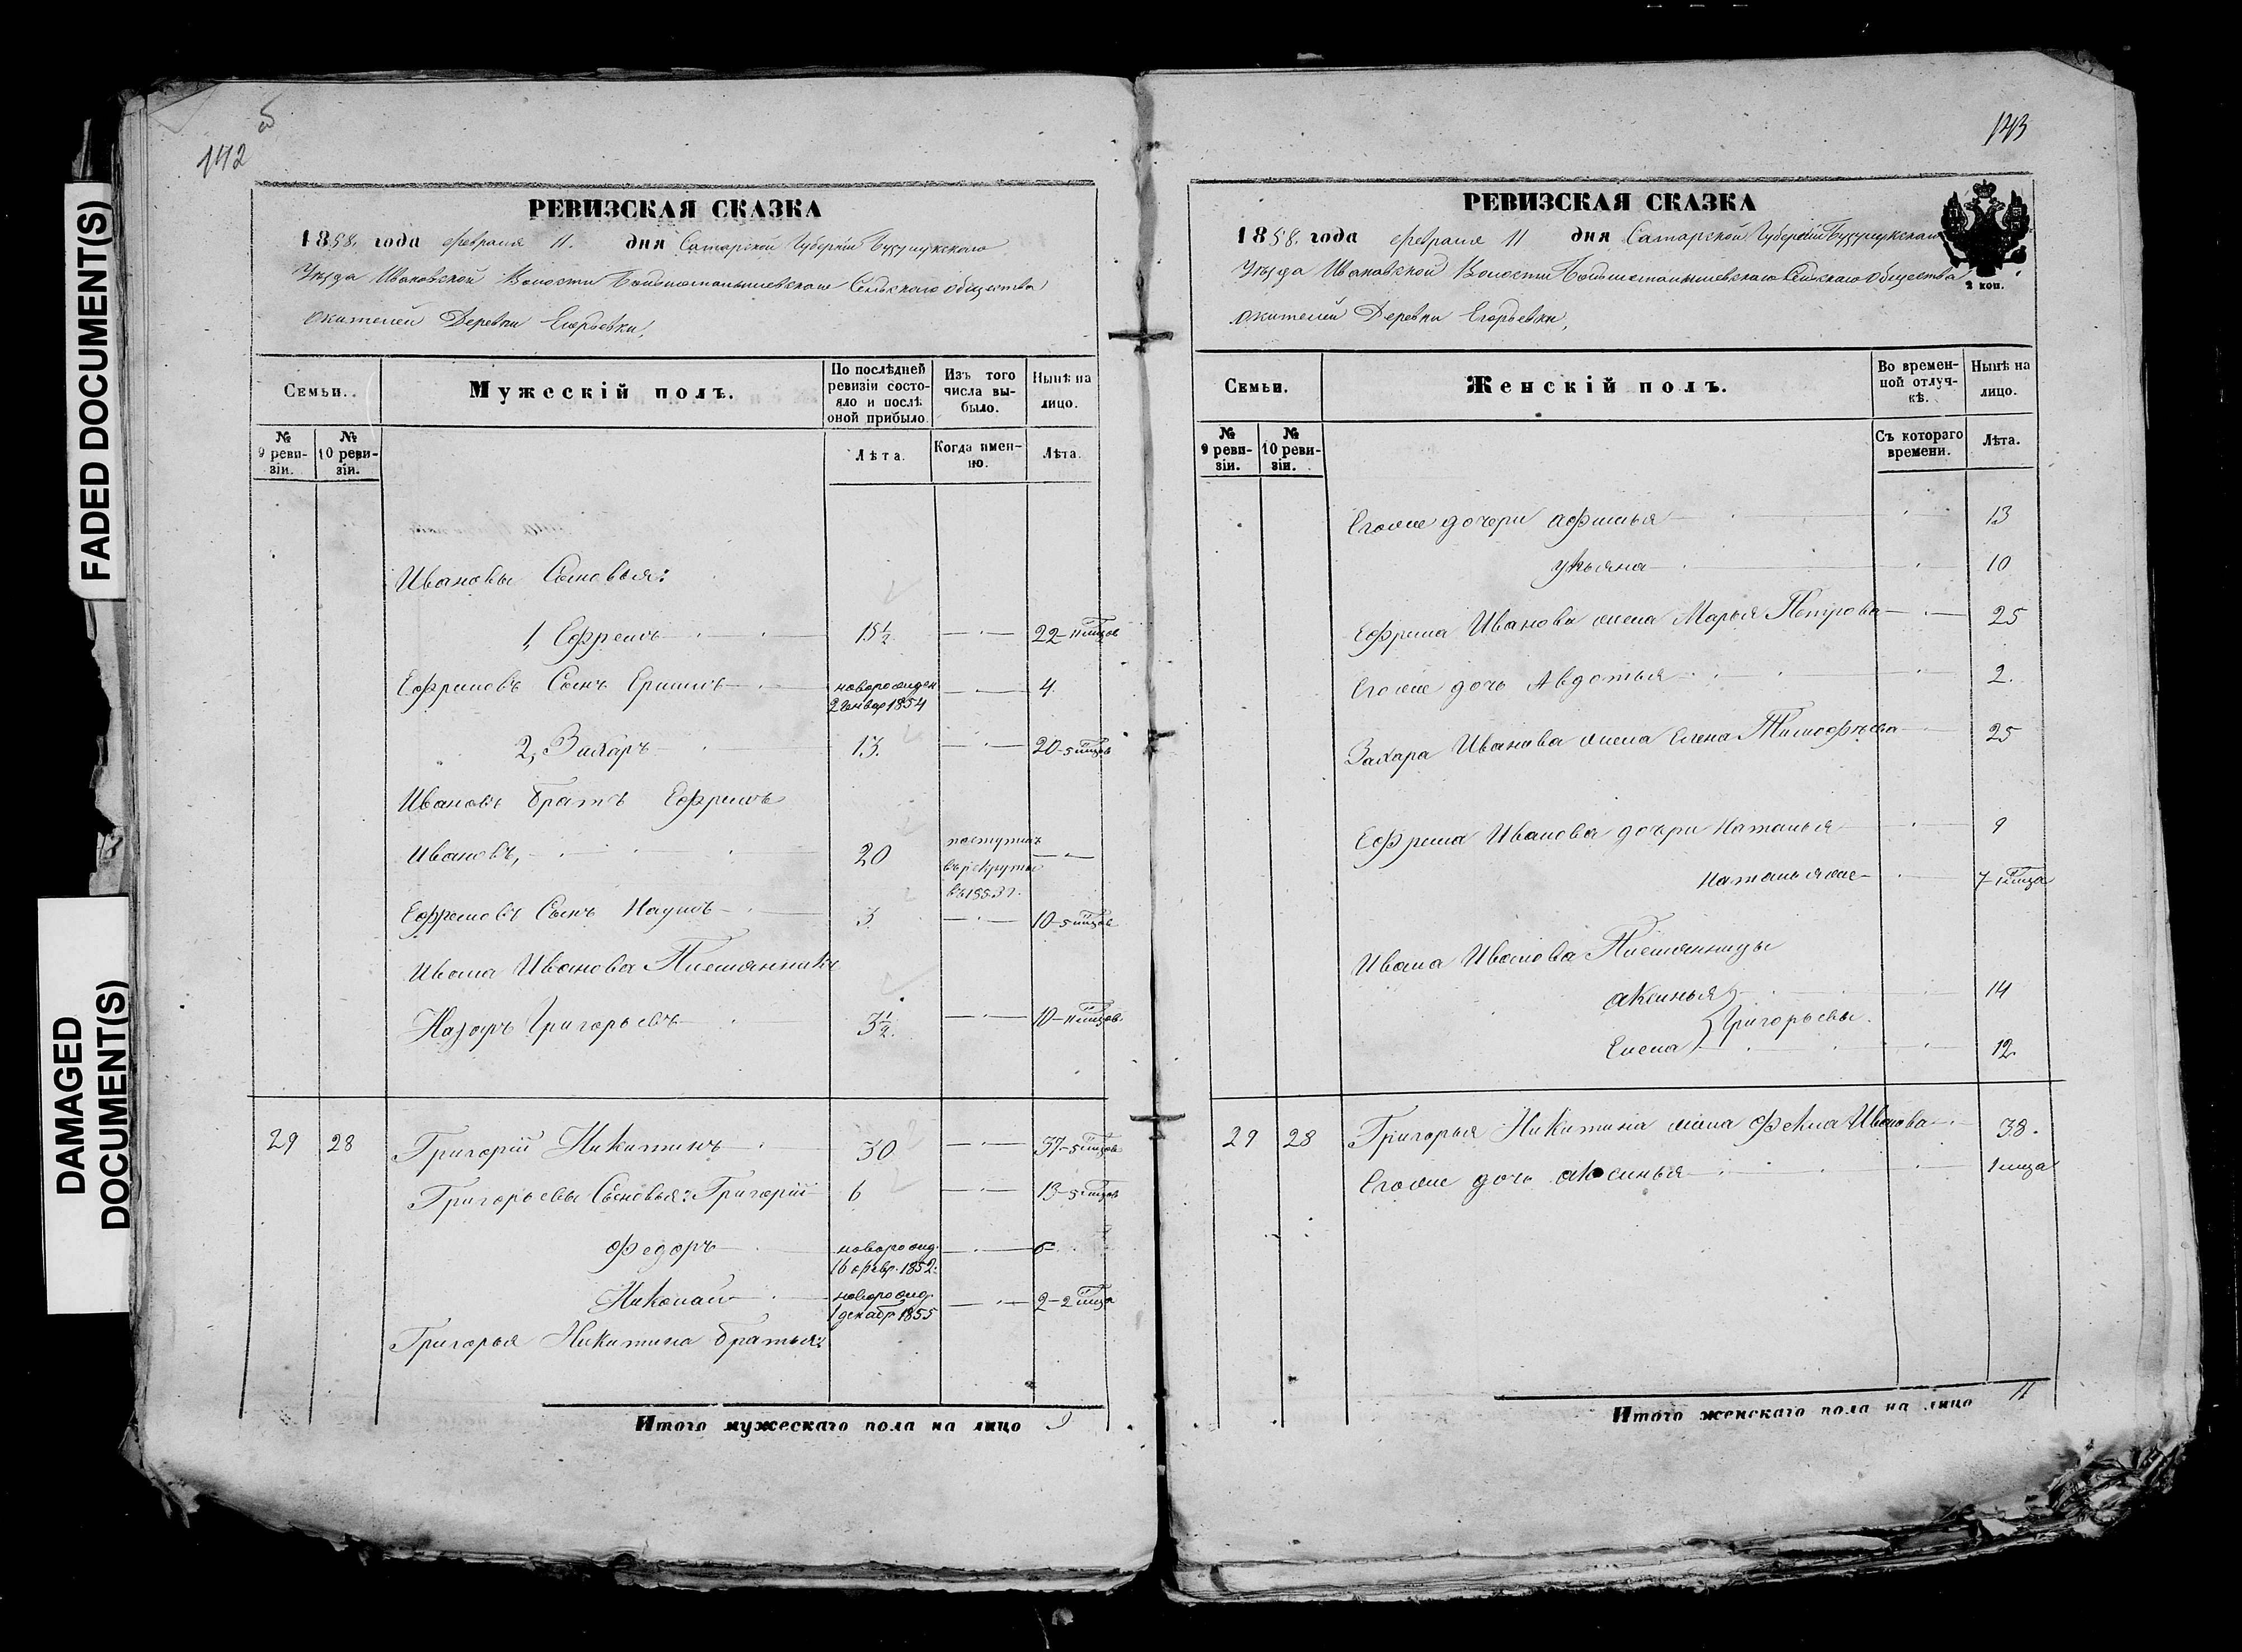 FADED DOCUMENT(S)
DAMAGED
DOCUMENT(S)
142
РЕВИЗСКАЯ СКАЗКА
1858. года февраля 11. дня Самарской Губерніи Бузулукскаго
Уѣзда Ивановской Волости Сельскаго общества
жителей Деревни Егорьевки,
Семьи.
Мужескій полъ.
По послѣдней ревизіи состояло и послѣ оной прибыло.
Изъ того числа выбыло.
Нынѣ на лицо.
№ 9 ревизіи.
№ 10 ревизіи.
Лѣта.
Когда именно.
Лѣта.
Ивановы Сыновья:
1, Ефремъ 15½ 22-11 мцов
Ефремовъ Сынъ новорожден 2 Генвар 1854 4.
2, Захаръ 13. 20-5 мцов
Ивановъ братъ Ефремъ
Ивановъ, 20 поступилъ въ рекруты въ 1853 г.
Ефремовъ Сынъ Наумъ 3. 10-5 мцов
Ивана Иванова Племянникъ
Назаръ Григорьевъ 3½. 10-11 мцов.
29 28 Григорій Никитинъ 30 37-5 мцов
Григорьевы Сыновья: Григорій 6 13-5 мцов
Федоръ новорожд. 16 февр. 1852. 6
Николай новорожд. 1 декабр. 1855 2-2 мца
Григорья Никитина братья:
Итого мужескаго пола на лицо 9
143
РЕВИЗСКАЯ СКАЗКА
1858. года февраля 11 дня Самарской Губерніи Бузулукскаго
Уѣзда Ивановской Волости Сельскаго Общества
жителей Деревни Егорьевки,
2 коп.
Семьи.
Женскій полъ.
Во временной отлучкѣ.
Нынѣ на лицо.
№ 9 ревизіи.
№ 10 ревизіи.
Съ котораго времени.
Лѣта.
Егоже дочери Афимья 13
Ульяна 10
Ефрема Иванова жена Марья Петрова 25
Егоже дочь Авдотья 2.
Захара Иванова жена Елена Тимофѣева 25
Ефрема Иванова дочери Наталья 9
Наталья же 7-1 мца
Ивана Иванова Племянницы
Аксинья 14
Григорьевы.
Елена 12.
29 28 Григорья Никитина жена Фекла Иванова 38.
Егоже дочь Аксинья 1 мца
Итого женскаго пола на лицо 11